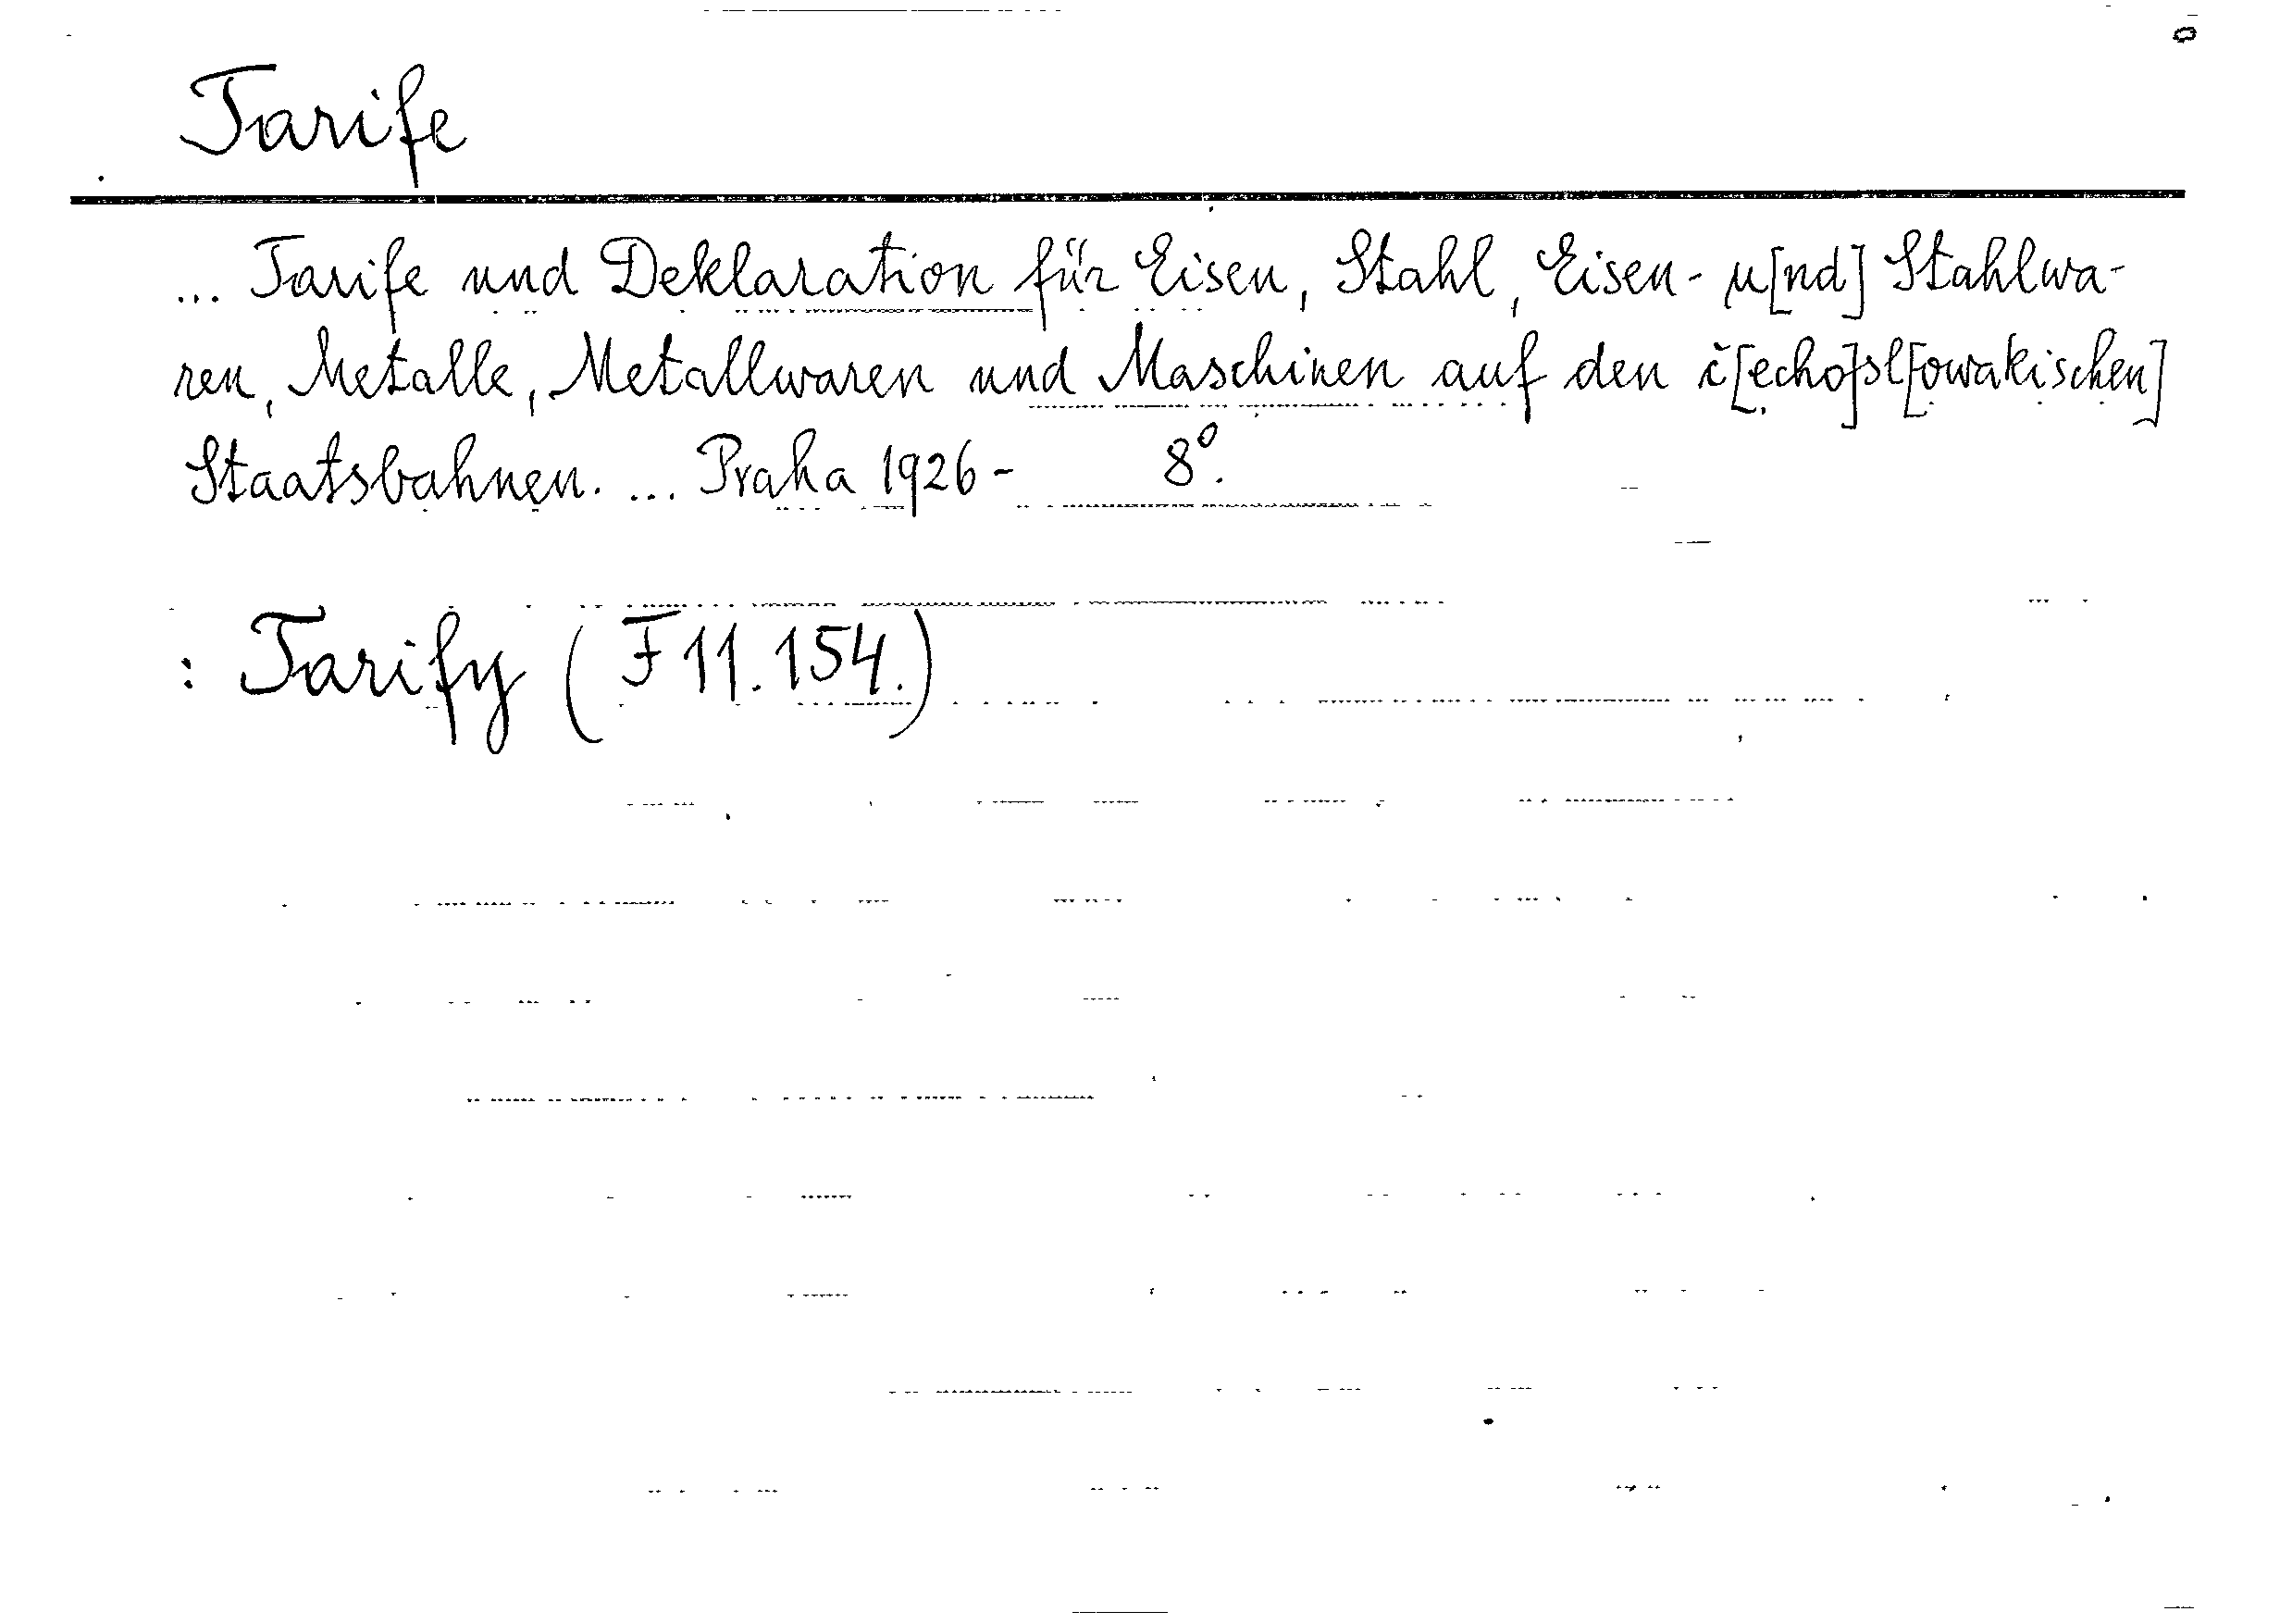 Tarife
... Tarife und Deklaration für Eisen, Stahl, Eisen- u[nd] Stahlwa-
ren, Metalle, Metallwaren und Maschinen auf den č[echo]sl[owakischen]
Staatsbahnen. ... Praha 1926 - 8°.
: Tarify (F 11.154.)